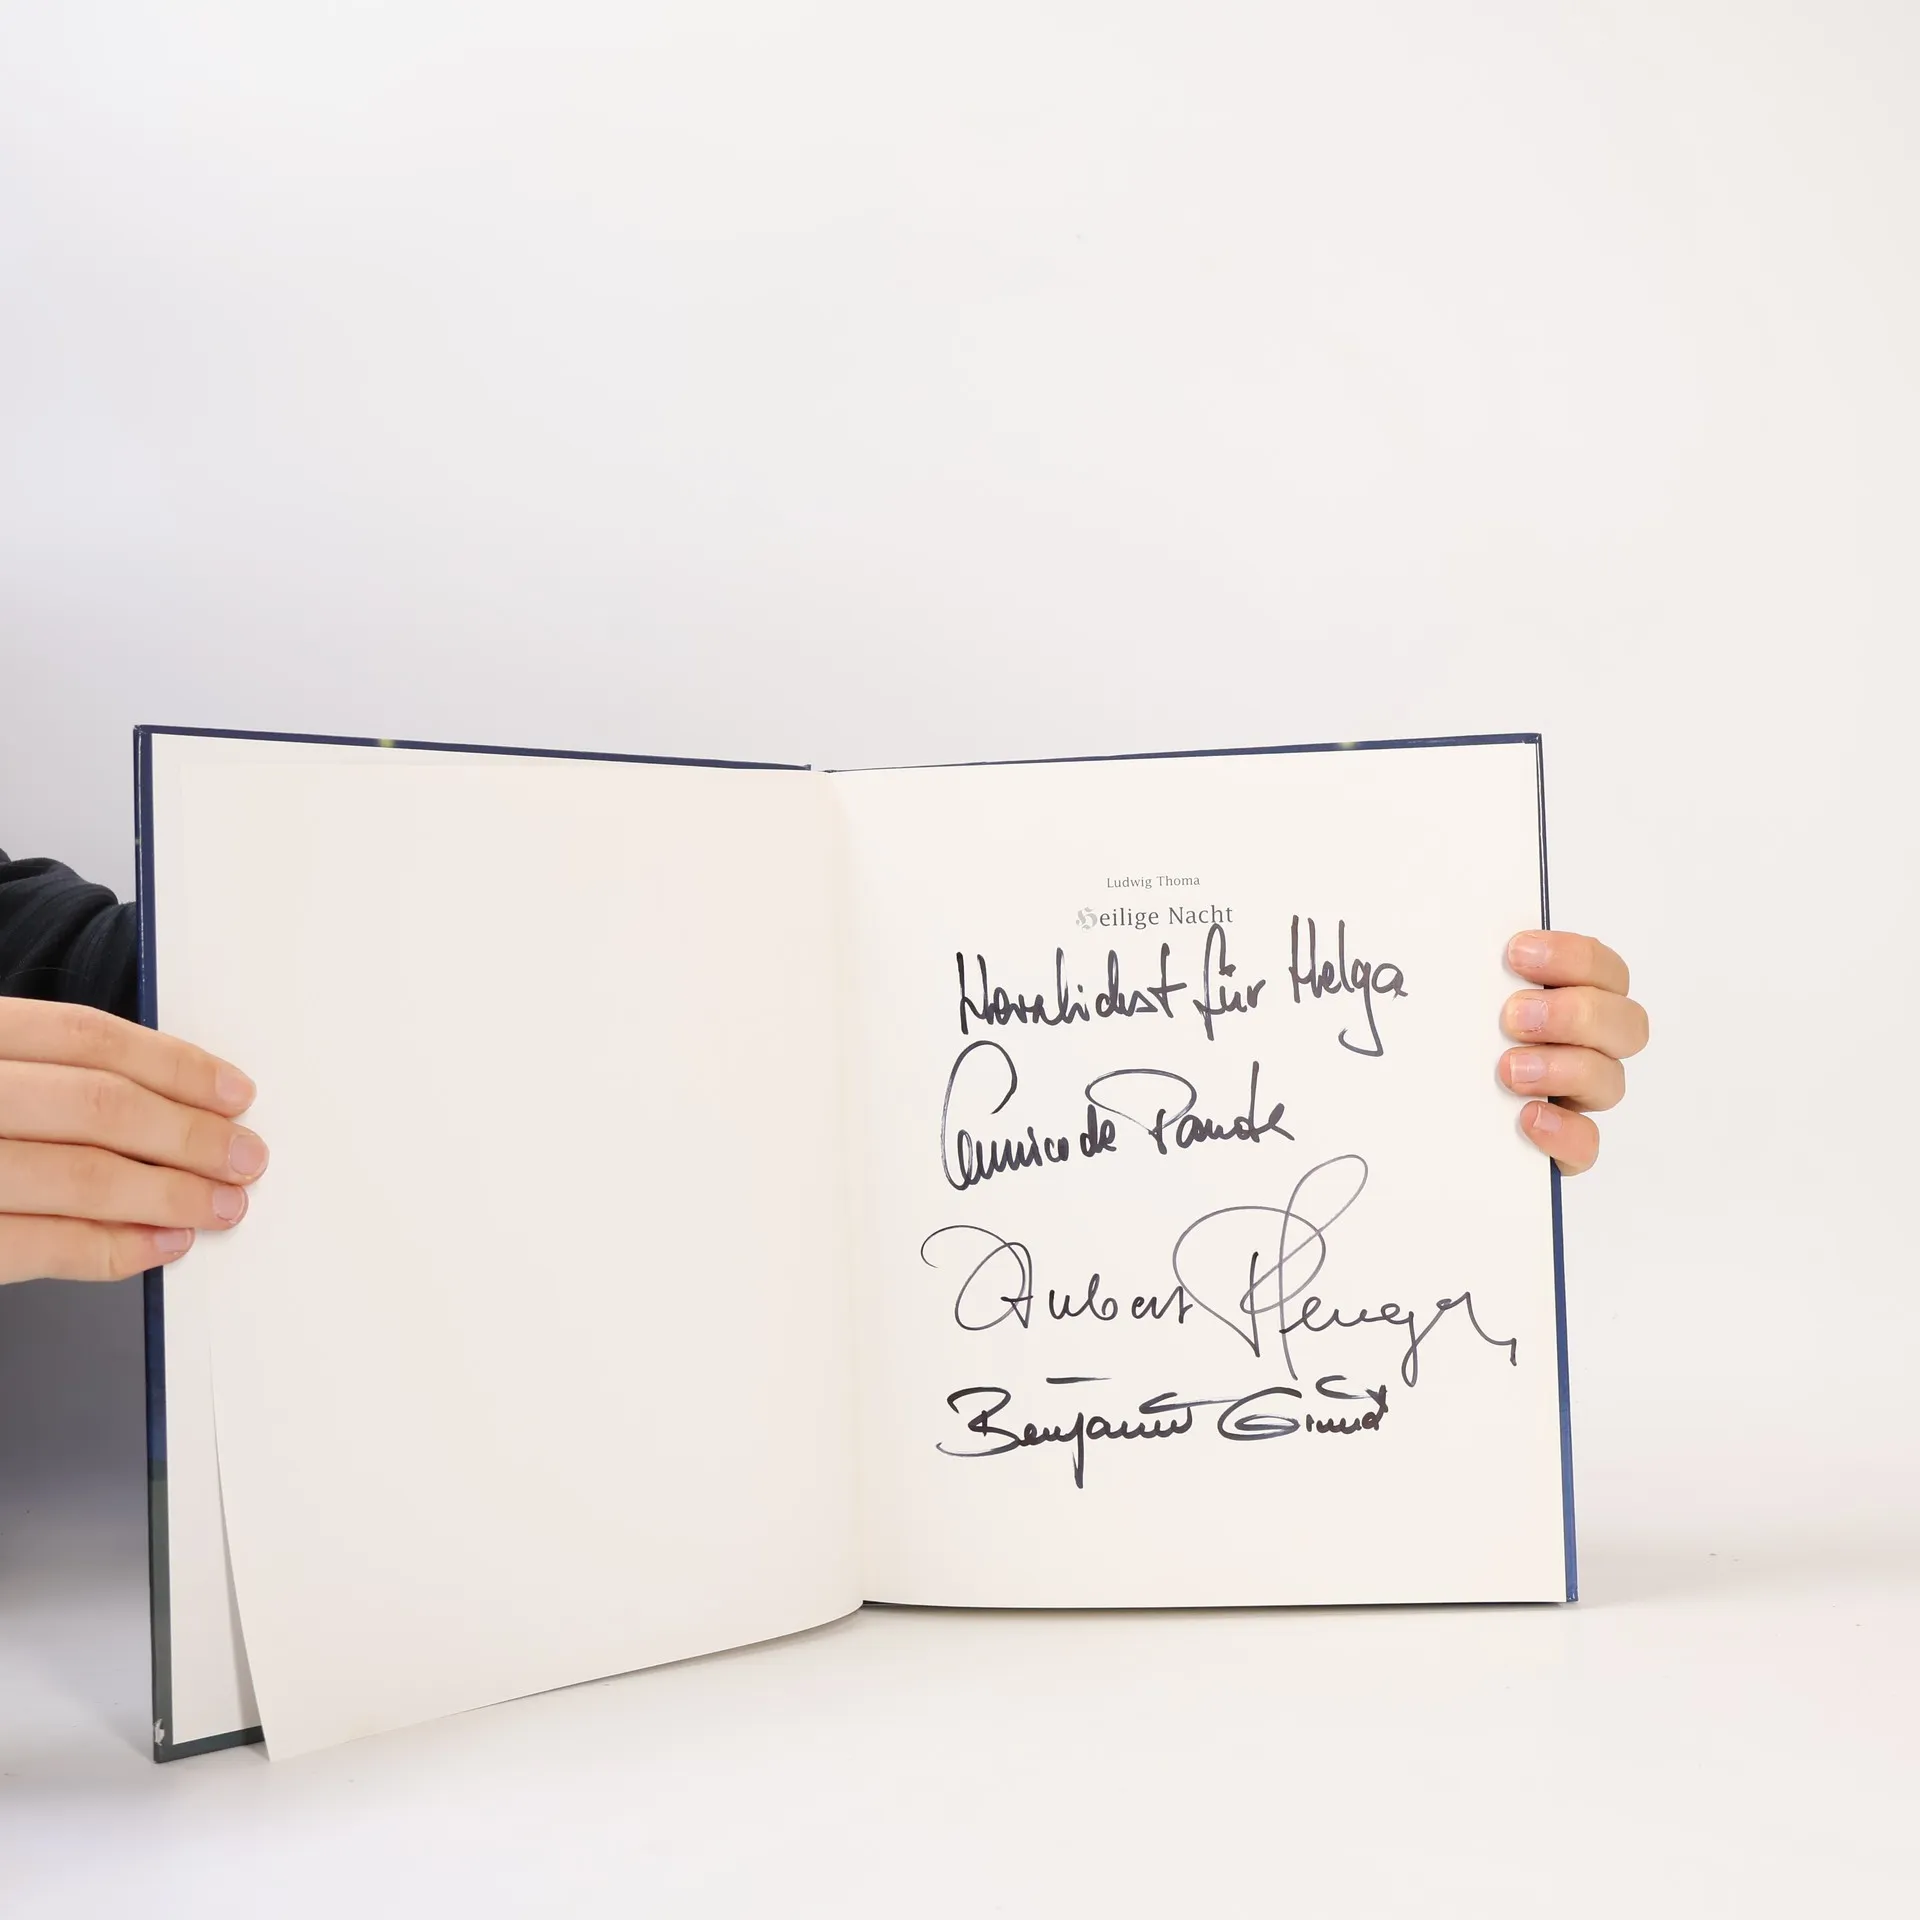 Ludwig Thoma
Heilige Nacht
Herzlichst für Helga
Enrico de Paruta
Hubert Pfluger
Benjamin Grund